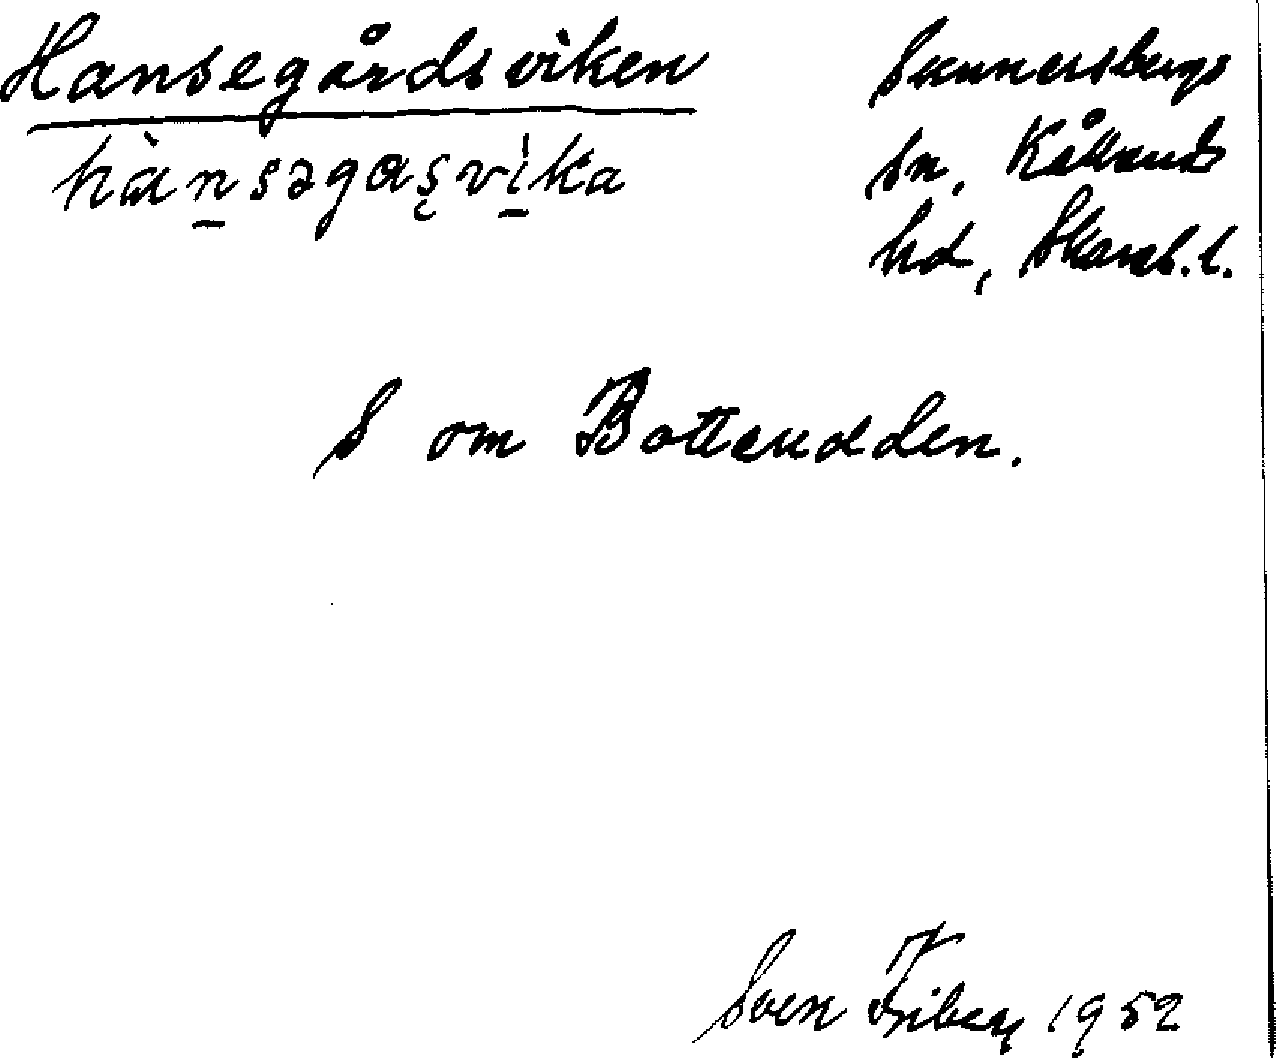 Hansegårdsviken
hànsəgaşvìka
Sunnersbergs
sn, Kållands
hd, Skarab. l.
S om Bottenudden.
Sven Friberg 1952